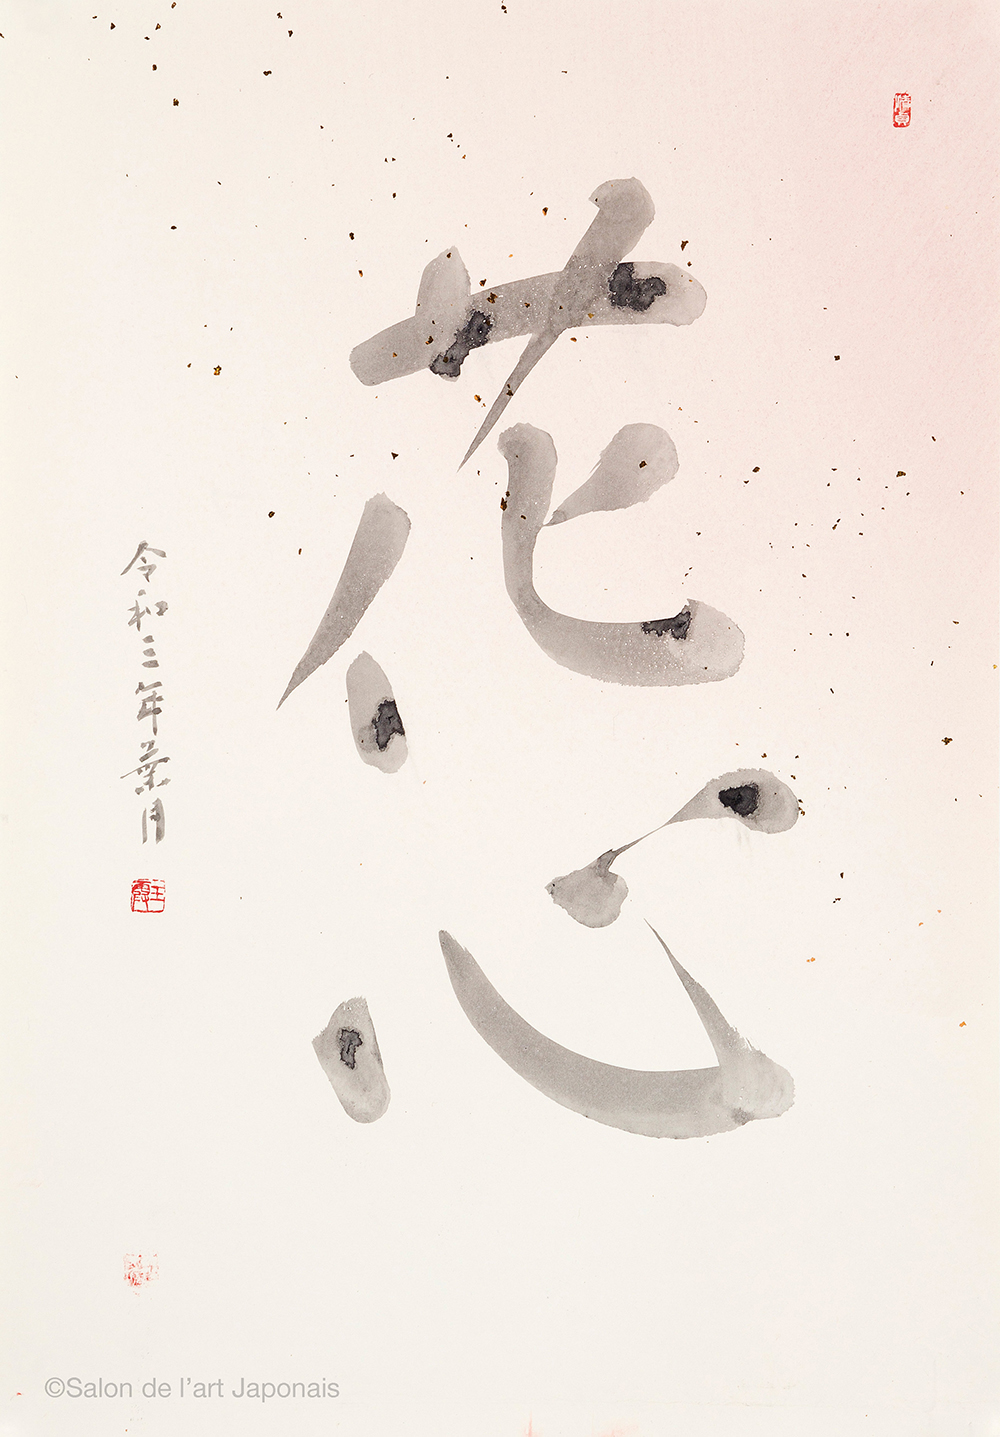 花心
令和三年葉月
©Salon de l'art Japonais